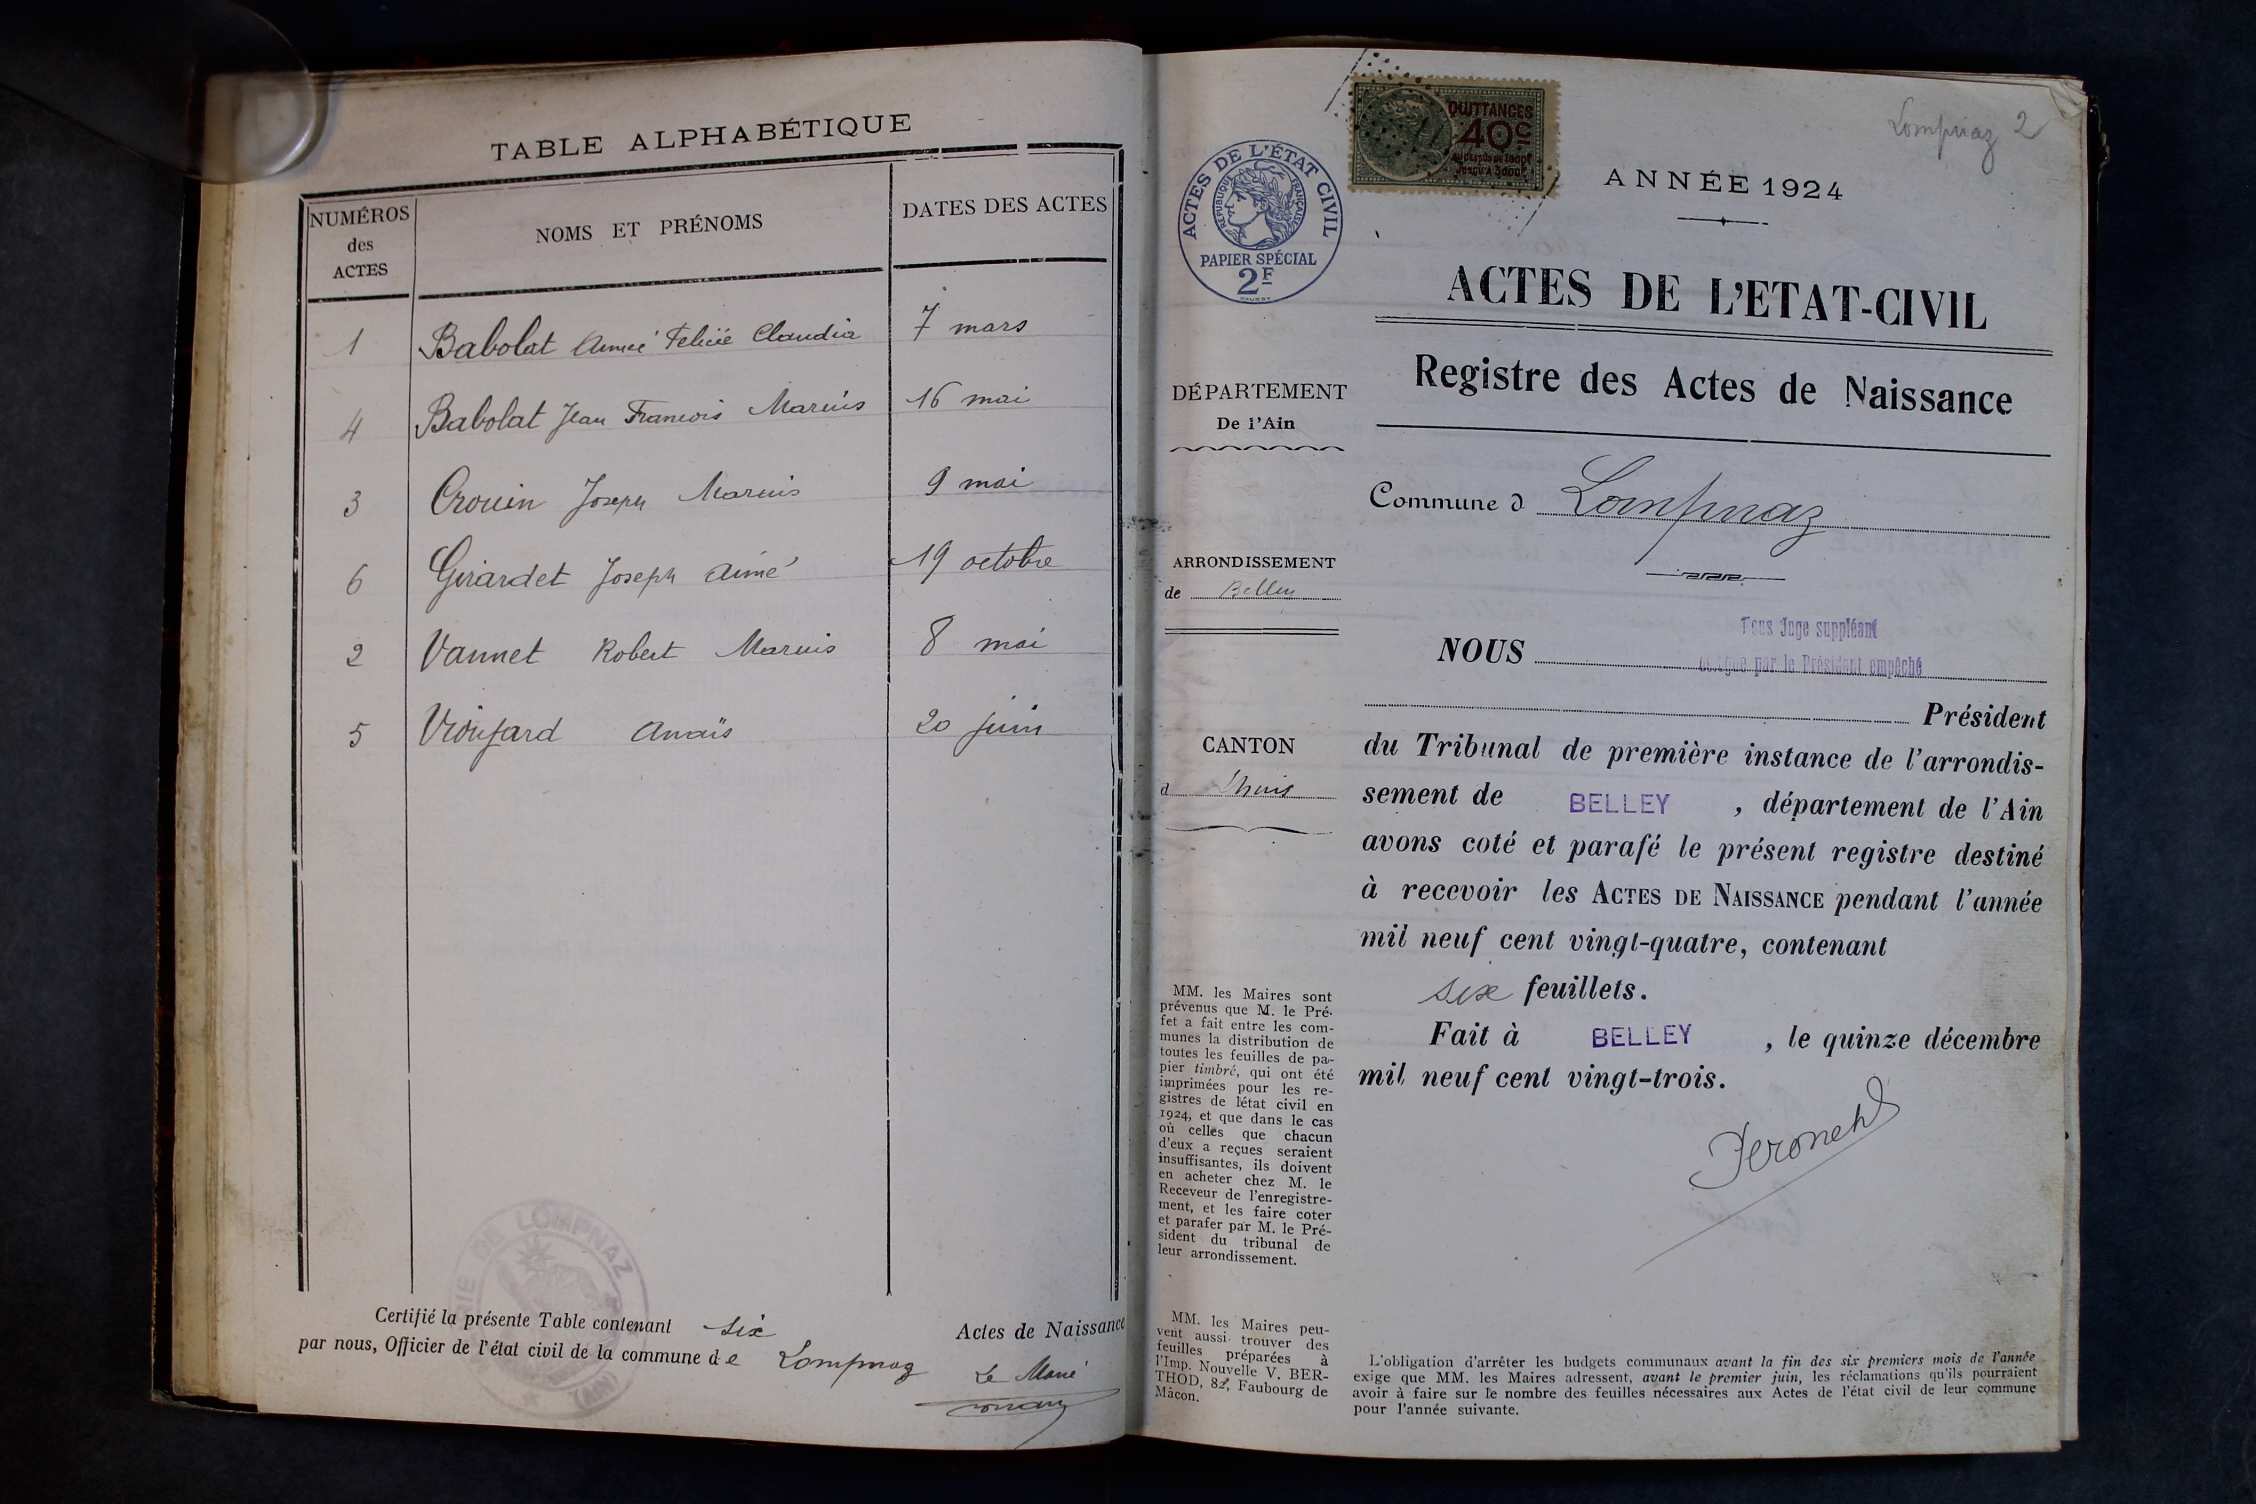 TABLE ALPHABÉTIQUE
NUMÉROS
des
ACTES
NOMS ET PRÉNOMS
DATES DES ACTES
1 Babolat Aimée Félicie Claudia 7 mars
4 Babolat Jean Francois Marius 16 mai
3 Crouin Joseph Marius 9 mai
6 Girardet Joseph Aimé 19 octobre
2 Vannet Robert Marius 8 mai
5 Anaïs 20 juin
MAIRIE DE LOMPNAZ
(AIN)
Certifié la présente Table contenant six Actes de Naissance
par nous, Officier de l'état civil de la commune de Lompnaz
Le Maire
QUITTANCES
40c
Lompnaz 2
ACTES DE L'ÉTAT CIVIL
RÉPUBLIQUE FRANÇAISE
PAPIER SPÉCIAL
2F
ANNÉE 1924
ACTES DE L'ETAT-CIVIL
Registre des Actes de Naissance
DÉPARTEMENT
De l'Ain
Commune d Lompnaz
ARRONDISSEMENT
de Belley
CANTON
d Lhuis
NOUS
Nous Juge suppléant
délégué par le Président empêché
Président
du Tribunal de première instance de l'arrondis-
sement de BELLEY , département de l'Ain
avons coté et parafé le présent registre destiné
à recevoir les ACTES DE NAISSANCE pendant l'année
mil neuf cent vingt-quatre, contenant
six feuillets.
Fait à BELLEY , le quinze décembre
mil neuf cent vingt-trois.
MM. les Maires sont
prévenus que M. le Pré-
fet a fait entre les com-
munes la distribution de
toutes les feuilles de pa-
pier timbré, qui ont été
imprimées pour les re-
gistres de l'état civil en
1924, et que dans le cas
où celles que chacun
d'eux a reçues seraient
insuffisantes, ils doivent
en acheter chez M. le
Receveur de l'enregistre-
ment, et les faire coter
et parafer par M. le Pré-
sident du tribunal de
leur arrondissement.
MM. les Maires peu-
vent aussi trouver des
feuilles préparées à
l'Imp. Nouvelle V. BER-
THOD, 82, Faubourg de
Mâcon.
L'obligation d'arrêter les budgets communaux avant la fin des six premiers mois de l'année
exige que MM. les Maires adressent, avant le premier juin, les réclamations qu'ils pourraient
avoir à faire sur le nombre des feuilles nécessaires aux Actes de l'état civil de leur commune
pour l'année suivante.